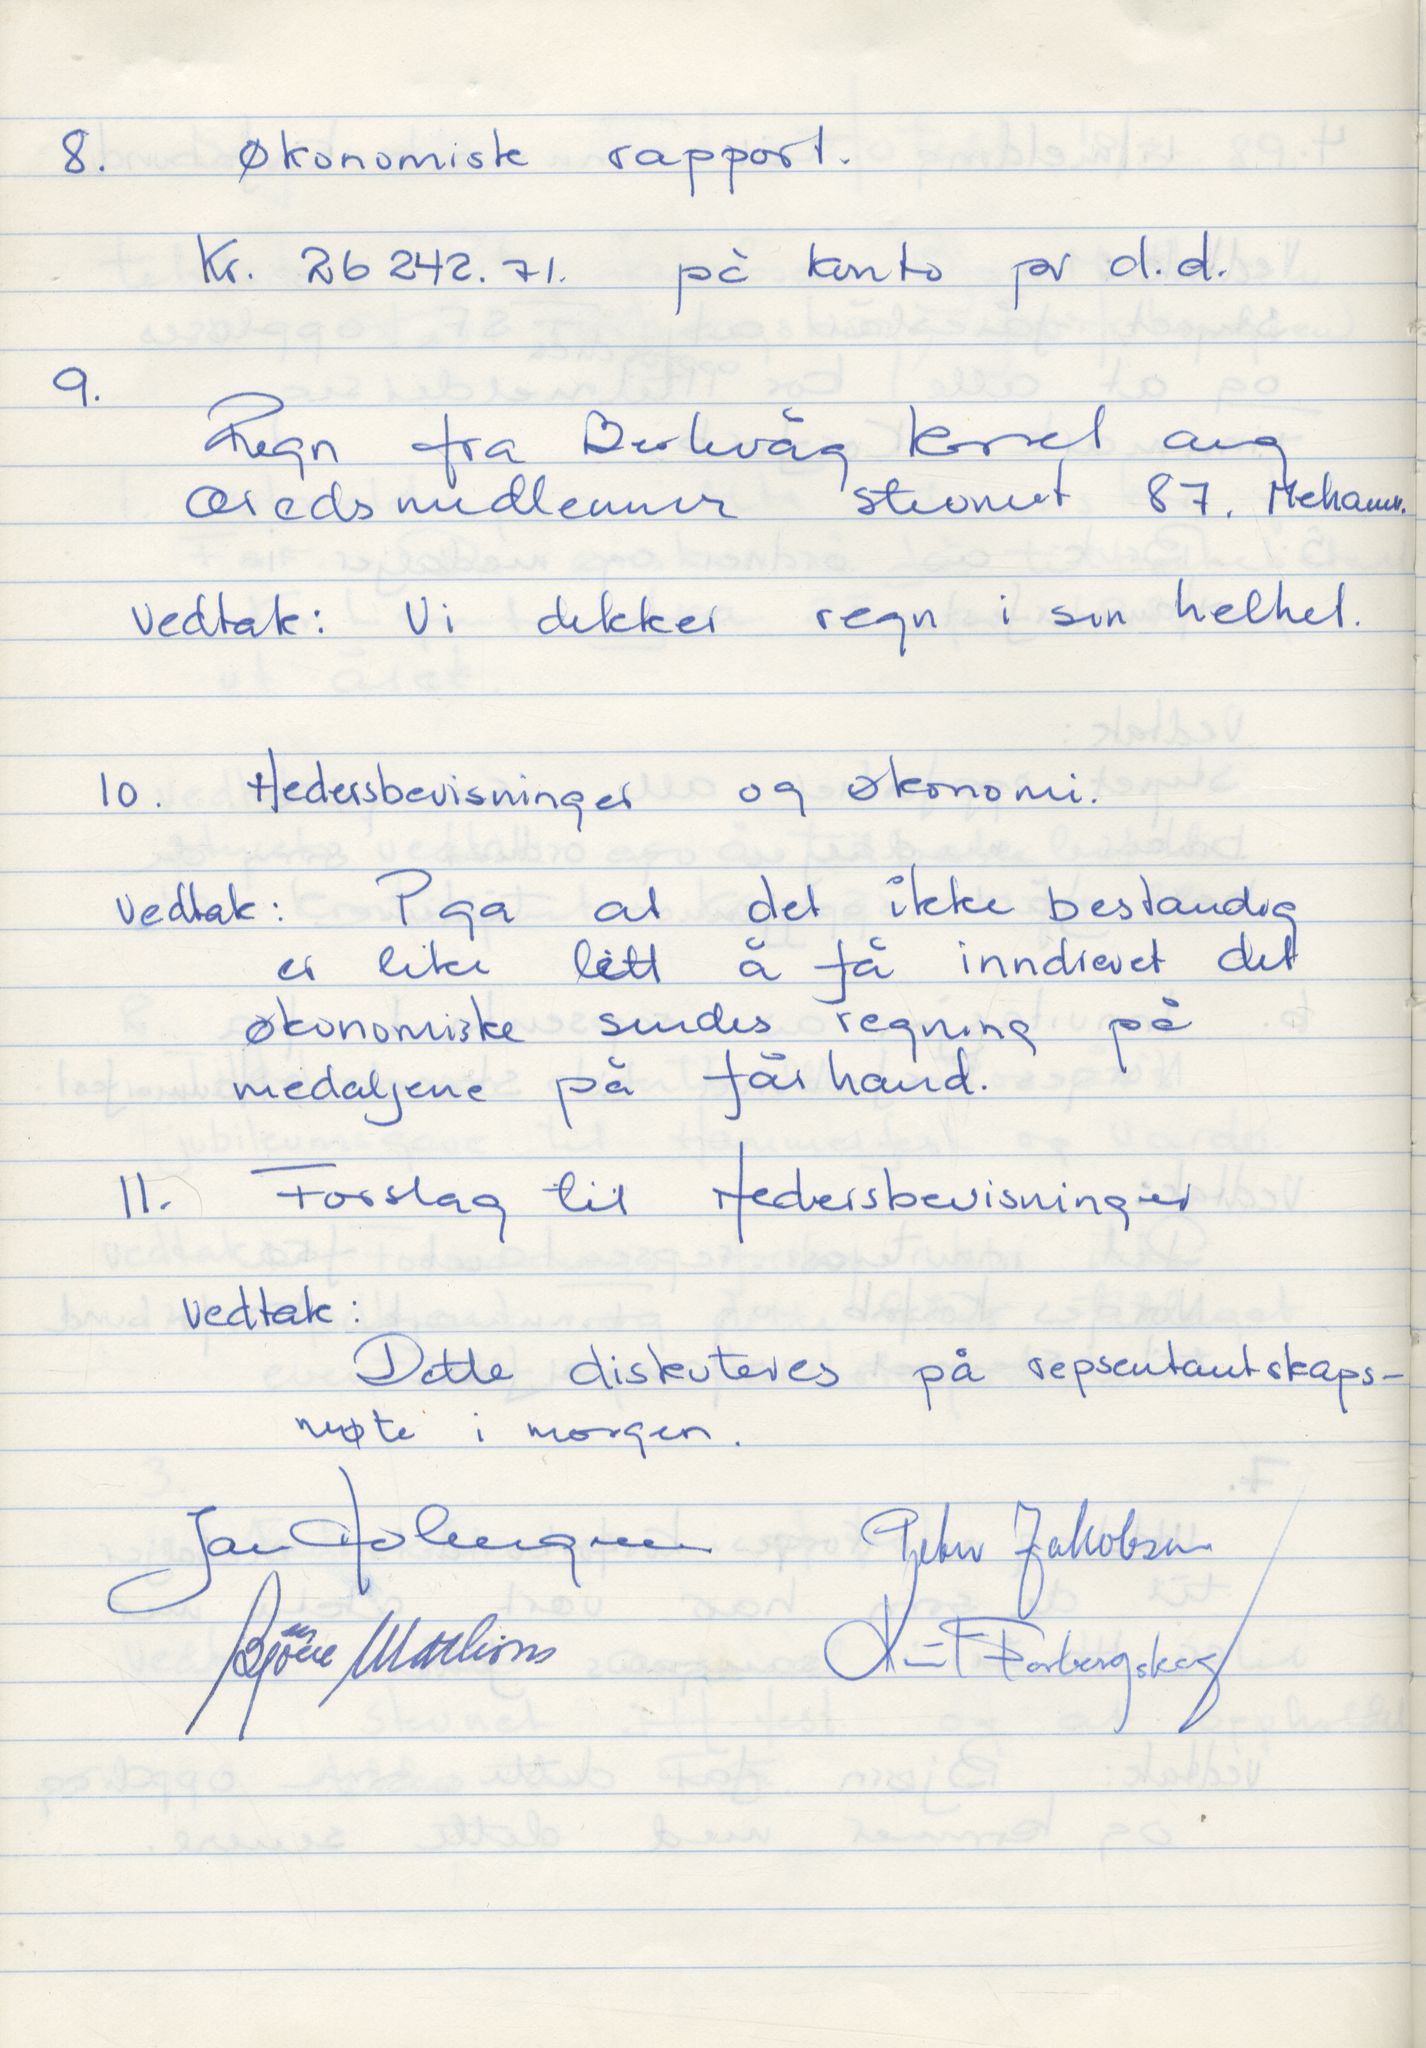 8. Økonomisk rapport.
Kr. 26 242.71. på konto pr d.d.
9.
Regn fra Berlevåg korsel ang
æresdsmedlemmer stevnet 87. Meham.
Vedtak: Vi dekker regn i sin helhet.
10. Hedersbevisninger og økonomi.
Vedtak: Pga at det ikke bestandig
er like lett å få inndrevet det
økonomiske sendes regning på
medaljene på fårhand.
11. Forslag til Hedersbevisninger
Vedtak:
Dette diskuteres på repsentantskaps-
møte i morgen.
Jan Holmgren Peter Jakobsen
Bjørn Forbergskog